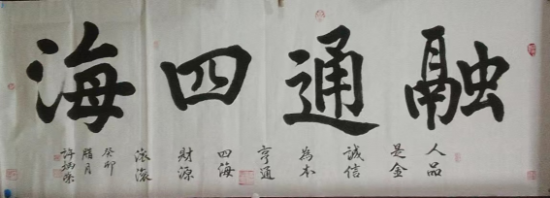 融通四海
人品
是金
誠信
為本
亨通
四海
財源
滾滾
癸卯
腊月
許炳榮